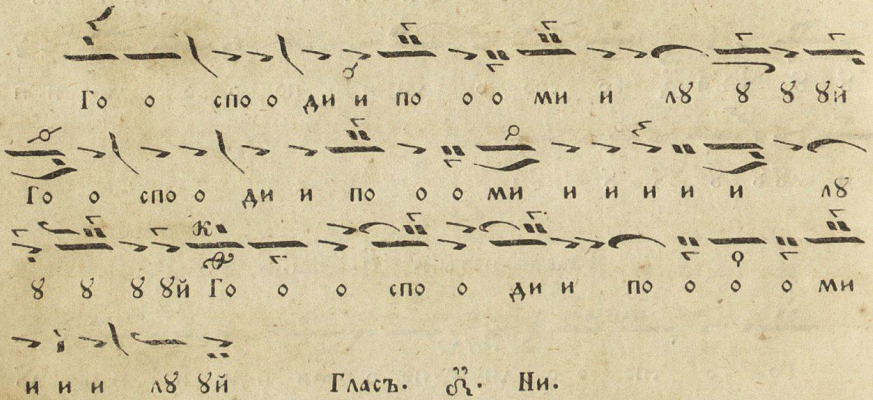 Го о спо о ди и по о о ми и лꙋ ꙋ ꙋ ꙋй
Го о спо о ди и по о о ми и и и и и лꙋ
ꙋ ꙋ ꙋ ꙋй Го о о спо о ди и по о о о ми
и и и лꙋ ꙋй Гласъ. Ни.